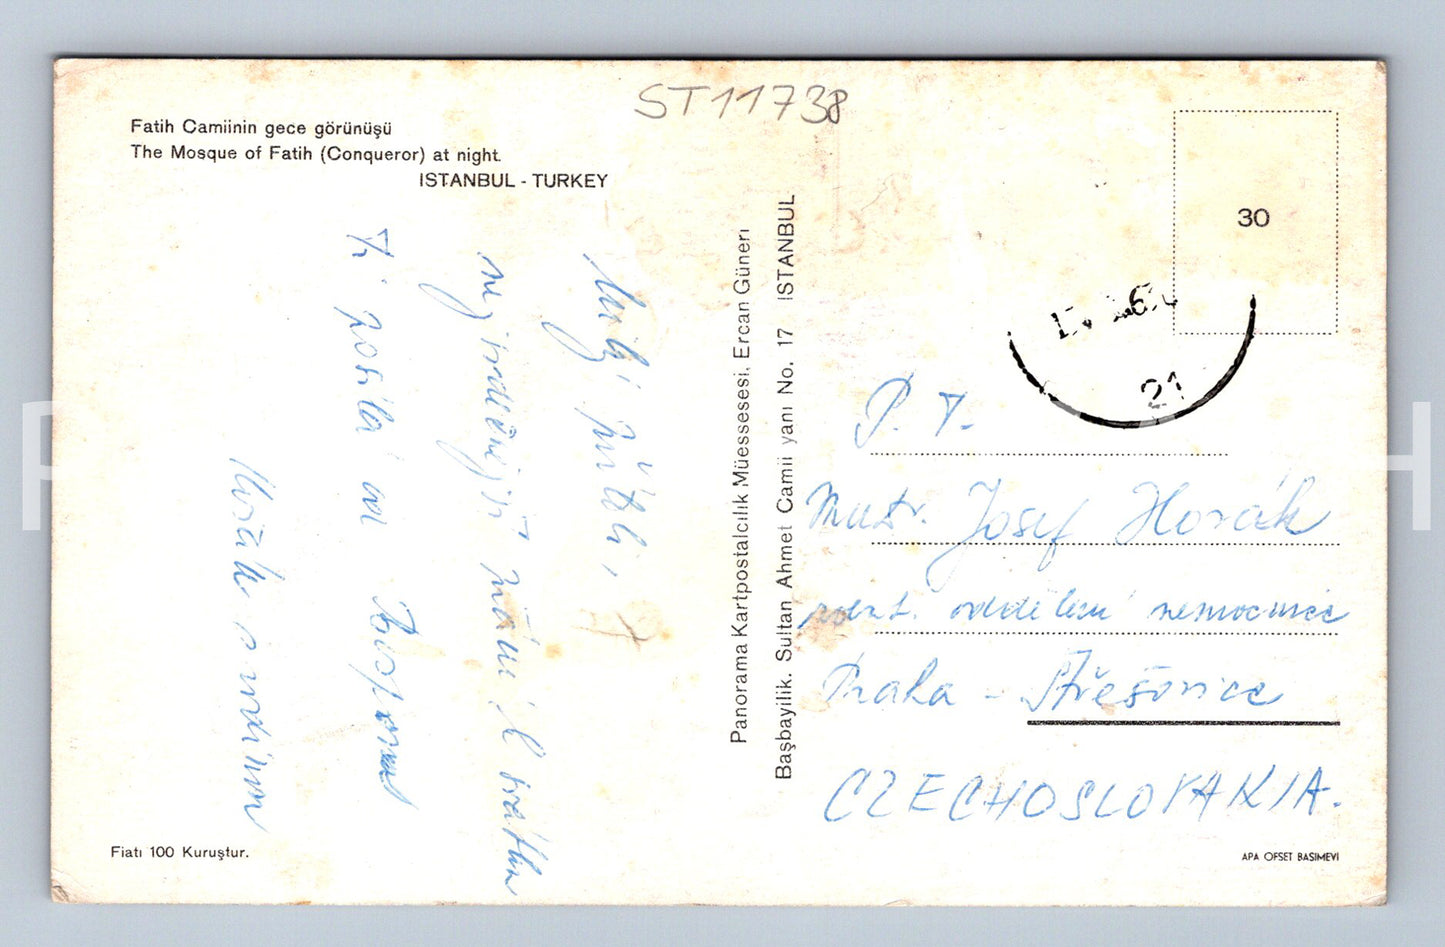 ST11738
Fatih Camiinin gece görünüşü
The Mosque of Fatih (Conqueror) at night.
ISTANBUL - TURKEY
milý příteli,
nejsrdečnější přání
Ti posílá
Horák s rodinou
Fiatı 100 Kuruştur.
Panorama Kartpostalcılık Müessesesi, Ercan Güneri
Başbayilik. Sultan Ahmet Camii yanı No. 17 ISTANBUL
30
21
P. T.
Josef Horák
oddělení nemocnice
Praha - Střešovice
CZECHOSLOVAKIA.
APA OFSET BASIMEVİ